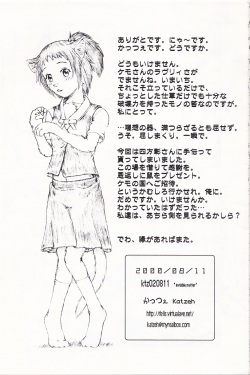 ありがとです。にゃ〜です。
かっつえです。どうですか。
どうもいけません。
ケモさんのラヴリィさが
でませんね。いまいち。
それこそ立っているだけで、
ちょっとした仕草だけでも十分な
破壊力を持ったモノの筈なのですが。
私にとって。
…理想の器、満つらざるとも屈せず。
うそ。屈しまくり。一瞬で。
今回は四方彰さんに手伝って
貰ってしまいました。
この場を借りて感謝を。
恩返しに鼠をプレゼント。
ケモの国へご招待。
というかむしろ行かせれ。俺に。
だめですか。いけませんか。
わかっていたはずだった…
私達は、あちら側を見られるかしら？
でわ、縁があればまた。
2000/08/11
ktz020811
かっつぇ Katzeh
katzeh@mymailbox.com